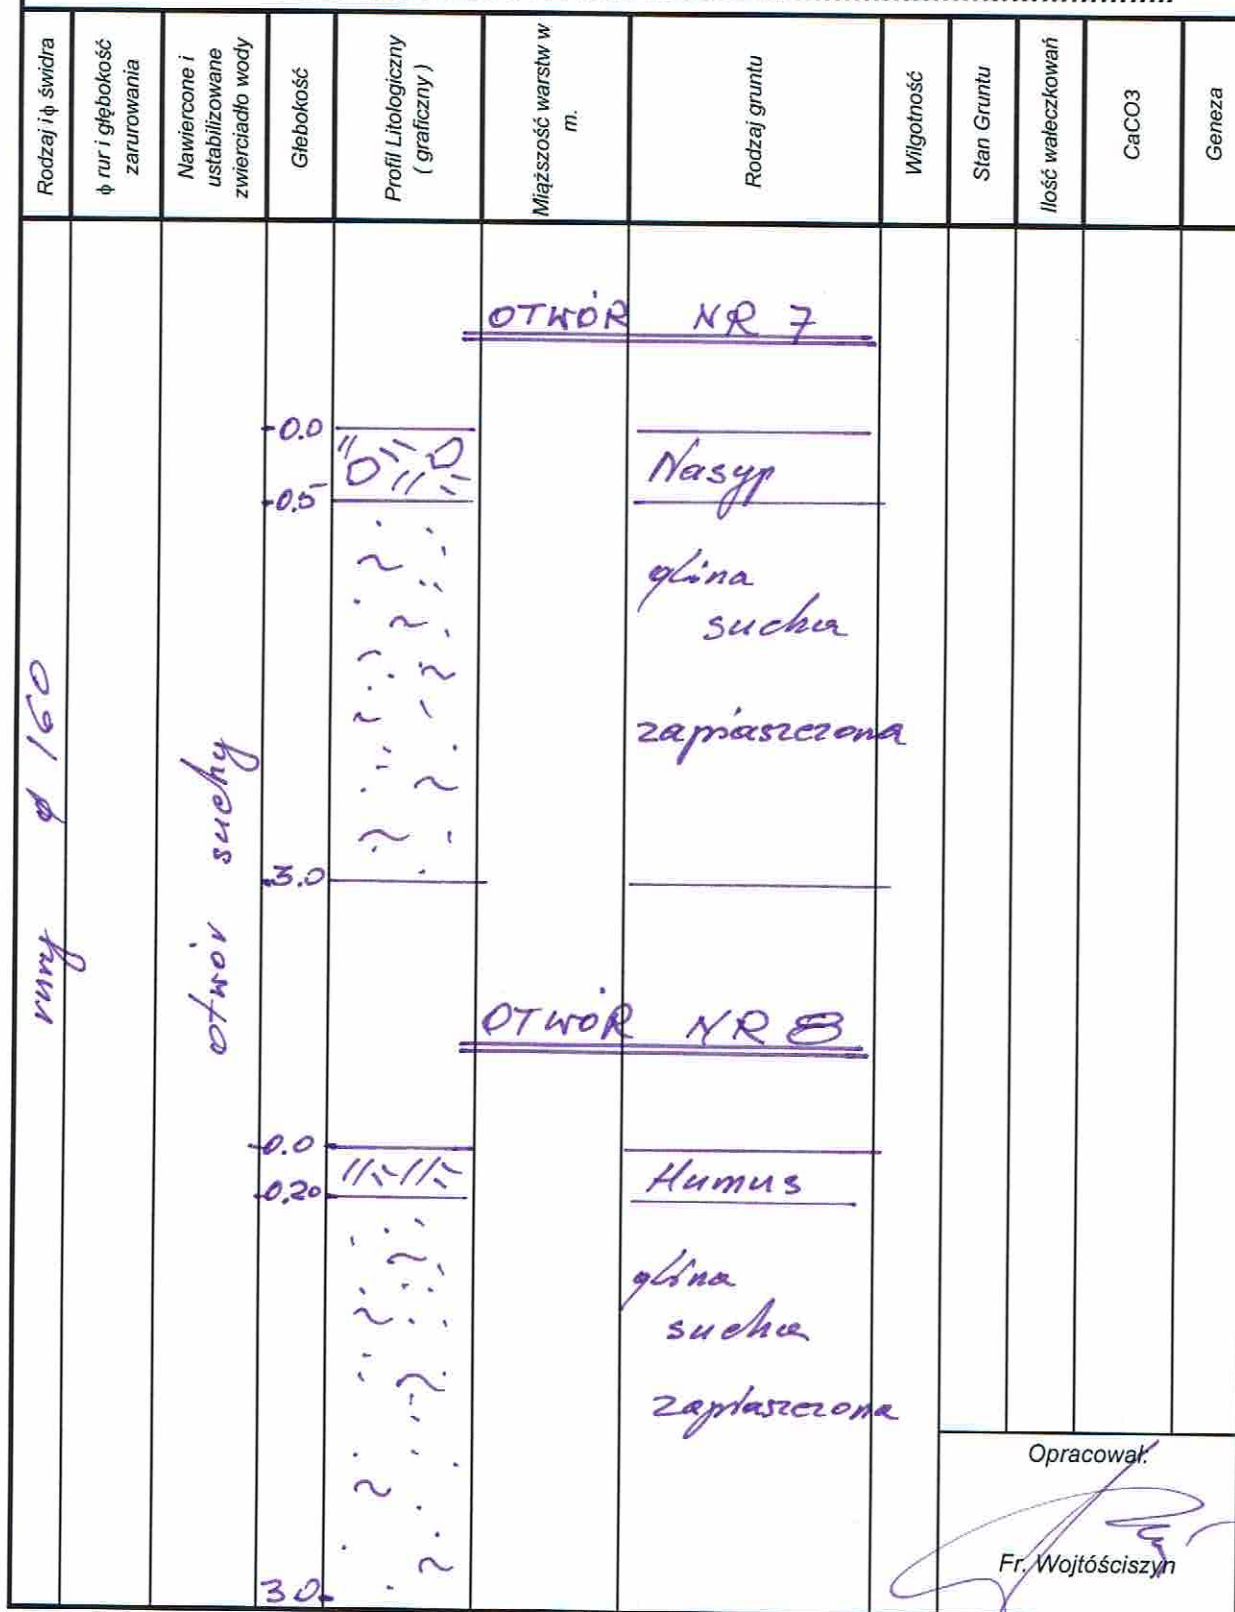 Rodzaj i ϕ świdra
ϕ rur i głębokość
zarurowania
Nawiercone i
ustabilizowane
zwierciadło wody
Głebokość
Profil Litologiczny
( graficzny )
Miąższość warstw w
m.
Rodzaj gruntu
Wilgotność
Stan Gruntu
Ilość wałeczkowań
CaCO3
Geneza
rury ϕ 160
otwór suchy
OTWÓR NR 7
0.0
Nasyp
0.5
glina
sucha
zapiaszczona
3.0
OTWÓR NR 8
0.0
Humus
0.20
glina
sucha
zapiaszczona
3.0
Opracował:
Fr. Wojtóściszyn